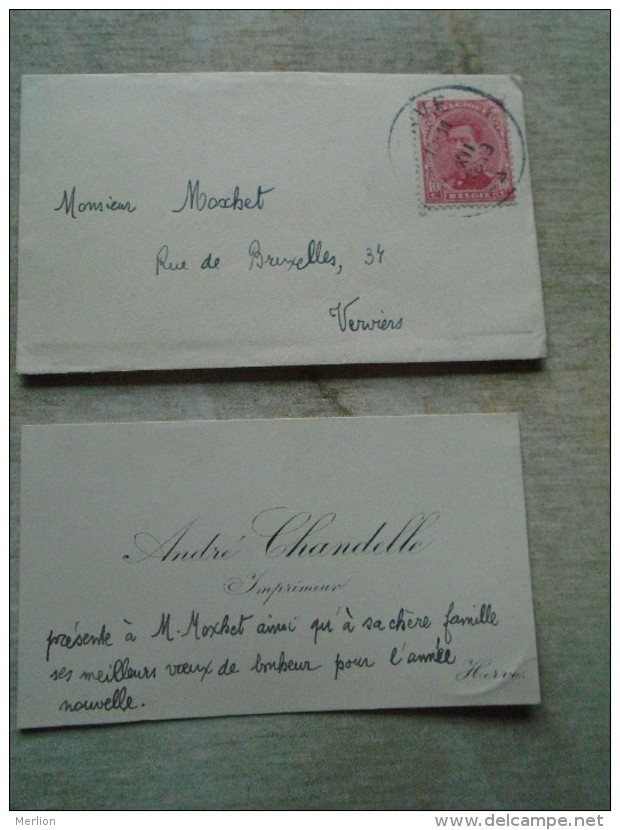 BELGIQUE
10
BELGIE
XII
Monsieur Moxhet
Rue de Bruxelles, 34
Verviers
André Chandelle
Imprimeur
présente à M. Moxhet ainsi qu'à sa chère famille
ses meilleurs vœux de bonheur pour l'année
nouvelle.
Herve
Merlion
www.delcampe.net